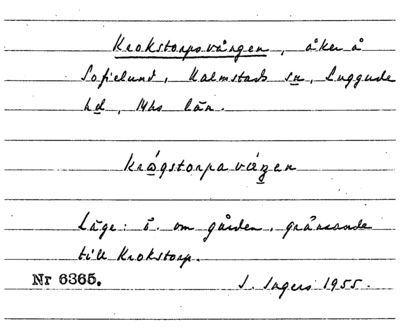 Krokstorpsvången, åker å
Sofielund, Kalmstads sn, Luggude
hd, Mhs län.
krågstorpa váŋen
Läge: ö. om gården, gränsande
till Krokstorp.
Nr 6365. J. Ingers 1955.